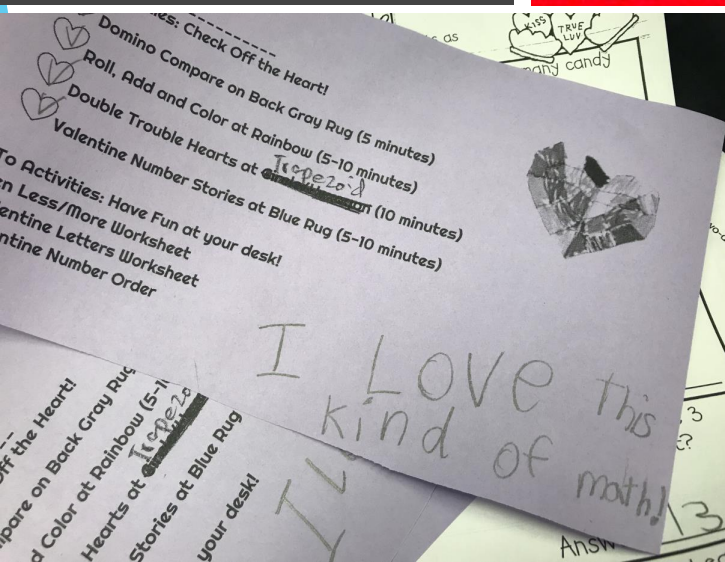 es: Check Off the Heart!
Domino Compare on Back Gray Rug (5 minutes)
Roll, Add and Color at Rainbow (5-10 minutes)
Trapezoid
Double Trouble Hearts at (10 minutes)
Valentine Number Stories at Blue Rug (5-10 minutes)
To Activities: Have Fun at your desk!
en Less/More Worksheet
entine Letters Worksheet
ntine Number Order
I Love this
kind of math!
ff the Heart!
pare on Back Gray Rug
d Color at Rainbow (5-1
Trapezo
Hearts at
Stories at Blue Rug
your desk!
I
KISS
TRUE
LUV
as
many candy
3
?
13
Answ